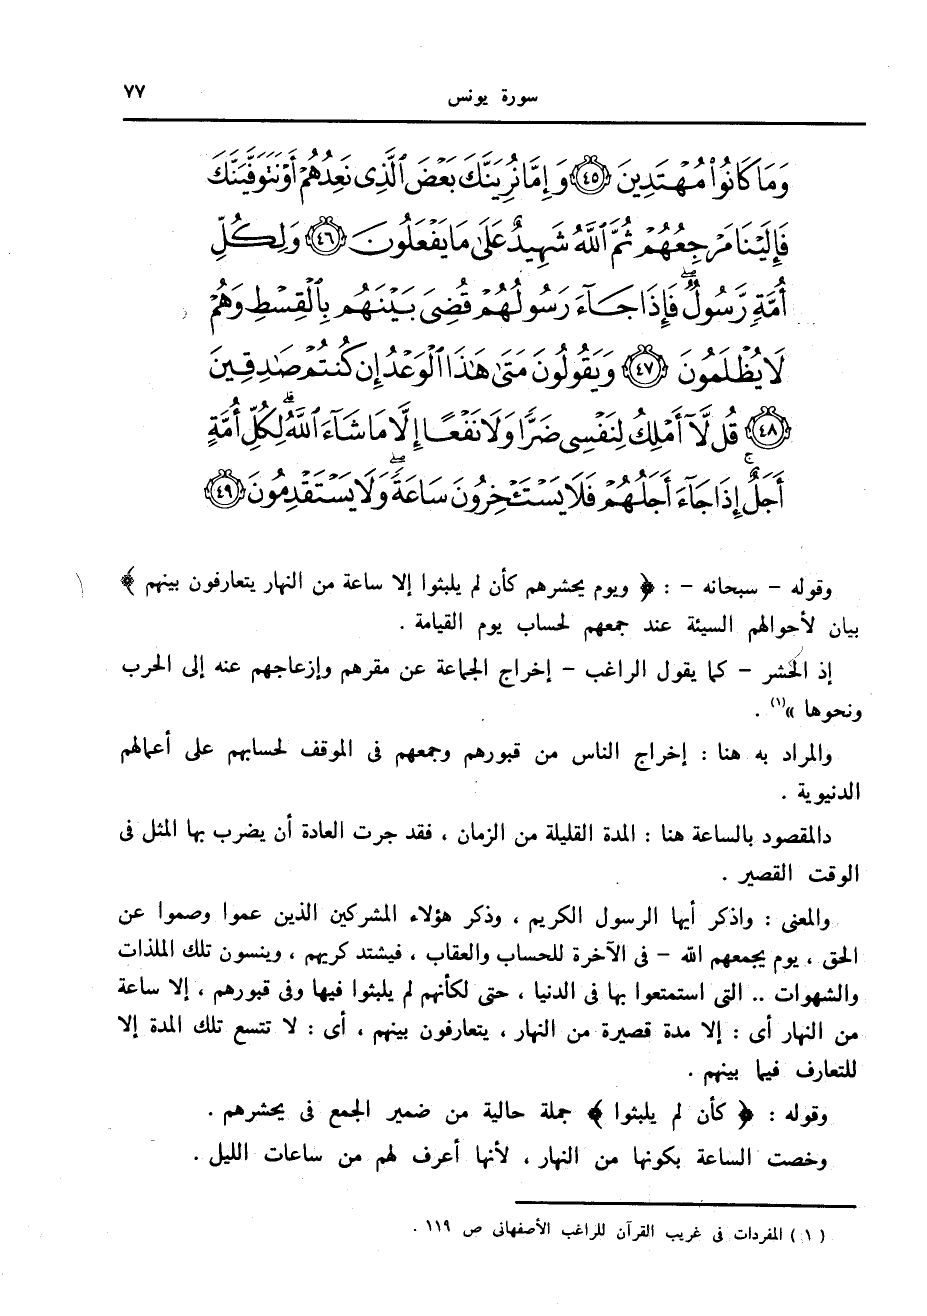 سورة يونس ٧٧
وَمَا كَانُوا۟ مُهْتَدِينَ ﴿٤٥﴾ وَإِمَّا نُرِيَنَّكَ بَعْضَ ٱلَّذِى نَعِدُهُمْ أَوْ نَتَوَفَّيَنَّكَ
فَإِلَيْنَا مَرْجِعُهُمْ ثُمَّ ٱللَّهُ شَهِيدٌ عَلَىٰ مَا يَفْعَلُونَ ﴿٤٦﴾ وَلِكُلِّ
أُمَّةٍ رَّسُولٌ ۖ فَإِذَا جَآءَ رَسُولُهُمْ قُضِىَ بَيْنَهُم بِٱلْقِسْطِ وَهُمْ
لَا يُظْلَمُونَ ﴿٤٧﴾ وَيَقُولُونَ مَتَىٰ هَٰذَا ٱلْوَعْدُ إِن كُنتُمْ صَٰدِقِينَ
﴿٤٨﴾ قُل لَّآ أَمْلِكُ لِنَفْسِى ضَرًّا وَلَا نَفْعًا إِلَّا مَا شَآءَ ٱللَّهُ ۗ لِكُلِّ أُمَّةٍ
أَجَلٌ ۚ إِذَا جَآءَ أَجَلُهُمْ فَلَا يَسْتَـْٔخِرُونَ سَاعَةً ۖ وَلَا يَسْتَقْدِمُونَ ﴿٤٩﴾
وقوله - سبحانه - : ﴿ ويوم يحشرهم كأن لم يلبثوا إلا ساعة من النهار يتعارفون بينهم ﴾
بيان لأحوالهم السيئة عند جمعهم لحساب يوم القيامة .
إذ الحشر - كما يقول الراغب - إخراج الجماعة عن مقرهم وإزعاجهم عنه إلى الحرب
ونحوها »(١) .
والمراد به هنا : إخراج الناس من قبورهم وجمعهم فى الموقف لحسابهم على أعمالهم
الدنيوية .
دالمقصود بالساعة هنا : المدة القليلة من الزمان ، فقد جرت العادة أن يضرب بها المثل فى
الوقت القصير .
والمعنى : واذكر أيها الرسول الكريم ، وذكر هؤلاء المشركين الذين عموا وصموا عن
الحق ، يوم يجمعهم الله - فى الآخرة للحساب والعقاب ، فيشتد كربهم ، وينسون تلك الملذات
والشهوات .. التى استمتعوا بها فى الدنيا ، حتى لكأنهم لم يلبثوا فيها وفى قبورهم ، إلا ساعة
من النهار أى : إلا مدة قصيرة من النهار ، يتعارفون بينهم ، أى : لا تتسع تلك المدة إلا
للتعارف فيما بينهم .
وقوله : ﴿ كأن لم يلبثوا ﴾ جملة حالية من ضمير الجمع فى يحشرهم .
وخصت الساعة بكونها من النهار ، لأنها أعرف لهم من ساعات الليل .
( ١ ) المفردات فى غريب القرآن للراغب الأصفهانى ص ١١٩ .